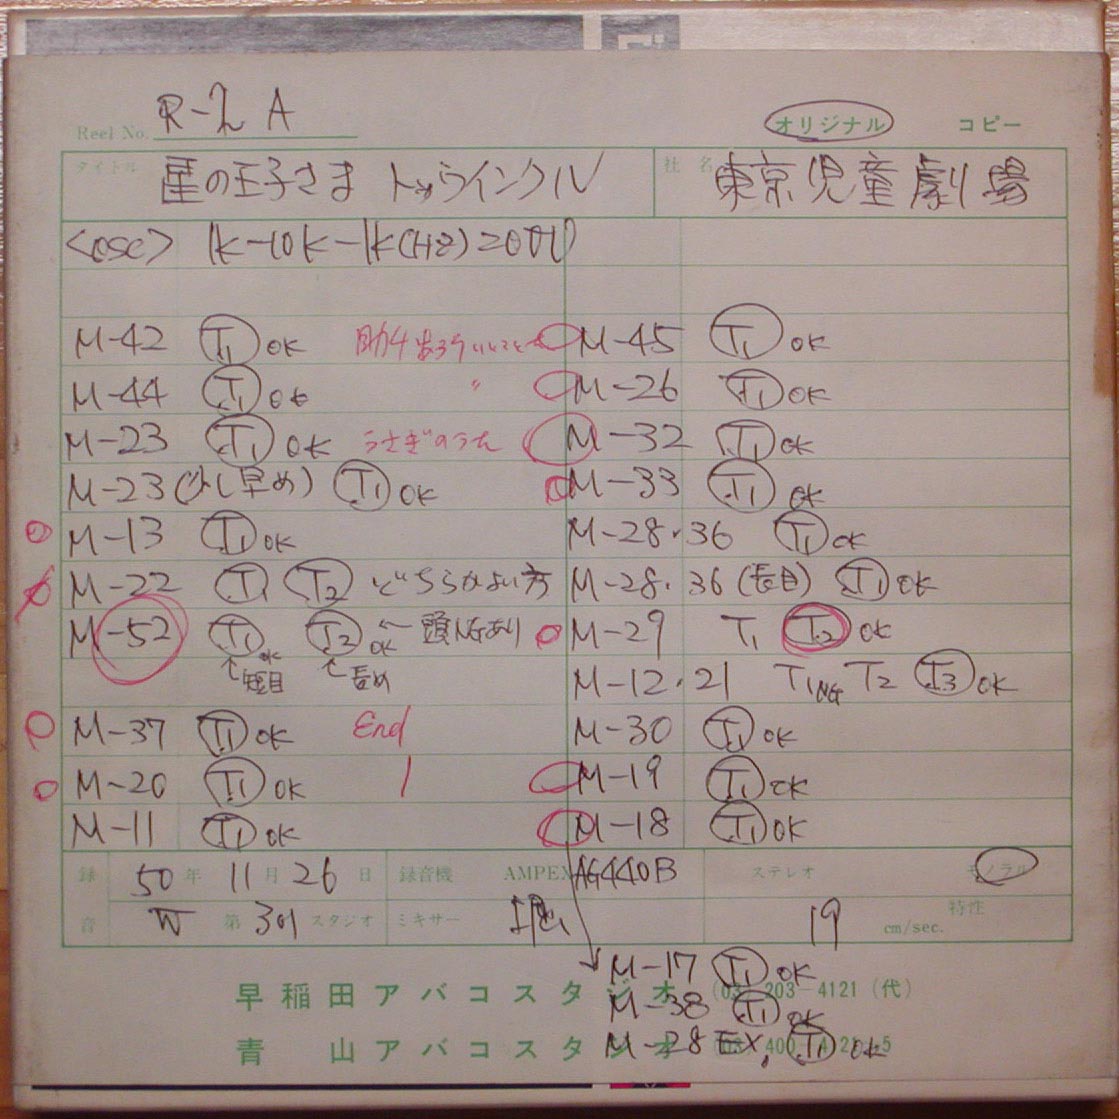 Reel No. R-2 A
オリジナル コピー
タイトル 星の王子さま トゥウインクル 社名 東京児童劇場
<OSC> 1K-10K-1K(HZ)
M-42 T1 OK
M-45 T1 OK
M-44 T1 OK 〃
M-26 T1 OK
M-23 T1 OK うさぎのうた
M-32 T1 OK
M-23(少し早め) T1 OK
M-33 T1 OK
M-13 T1 OK
M-28・36 T1 OK
M-22 T1 T2 どちらかよい方
M-28・36(長目) T1 OK
M-52 T1 OK T2 OK ← 頭NGあり
↑短目 ↑長め
M-29 T1 T2 OK
M-12・21 T1 NG T2 T3 OK
M-37 T1 OK End
M-30 T1 OK
M-20 T1 OK
M-19 T1 OK
M-11 T1 OK
M-18 T1 OK
録音 50年 11月 26日 録音機 AMPEX AG440B ステレオ モノラル
W 第 301 スタジオ ミキサー 19 cm/sec. 特性
M-17 T1 OK
早稲田アバコスタジオ (03) 203-4121 (代)
M-38 T1 OK
青山アバコスタジオ
M-28 EX. T1 OK